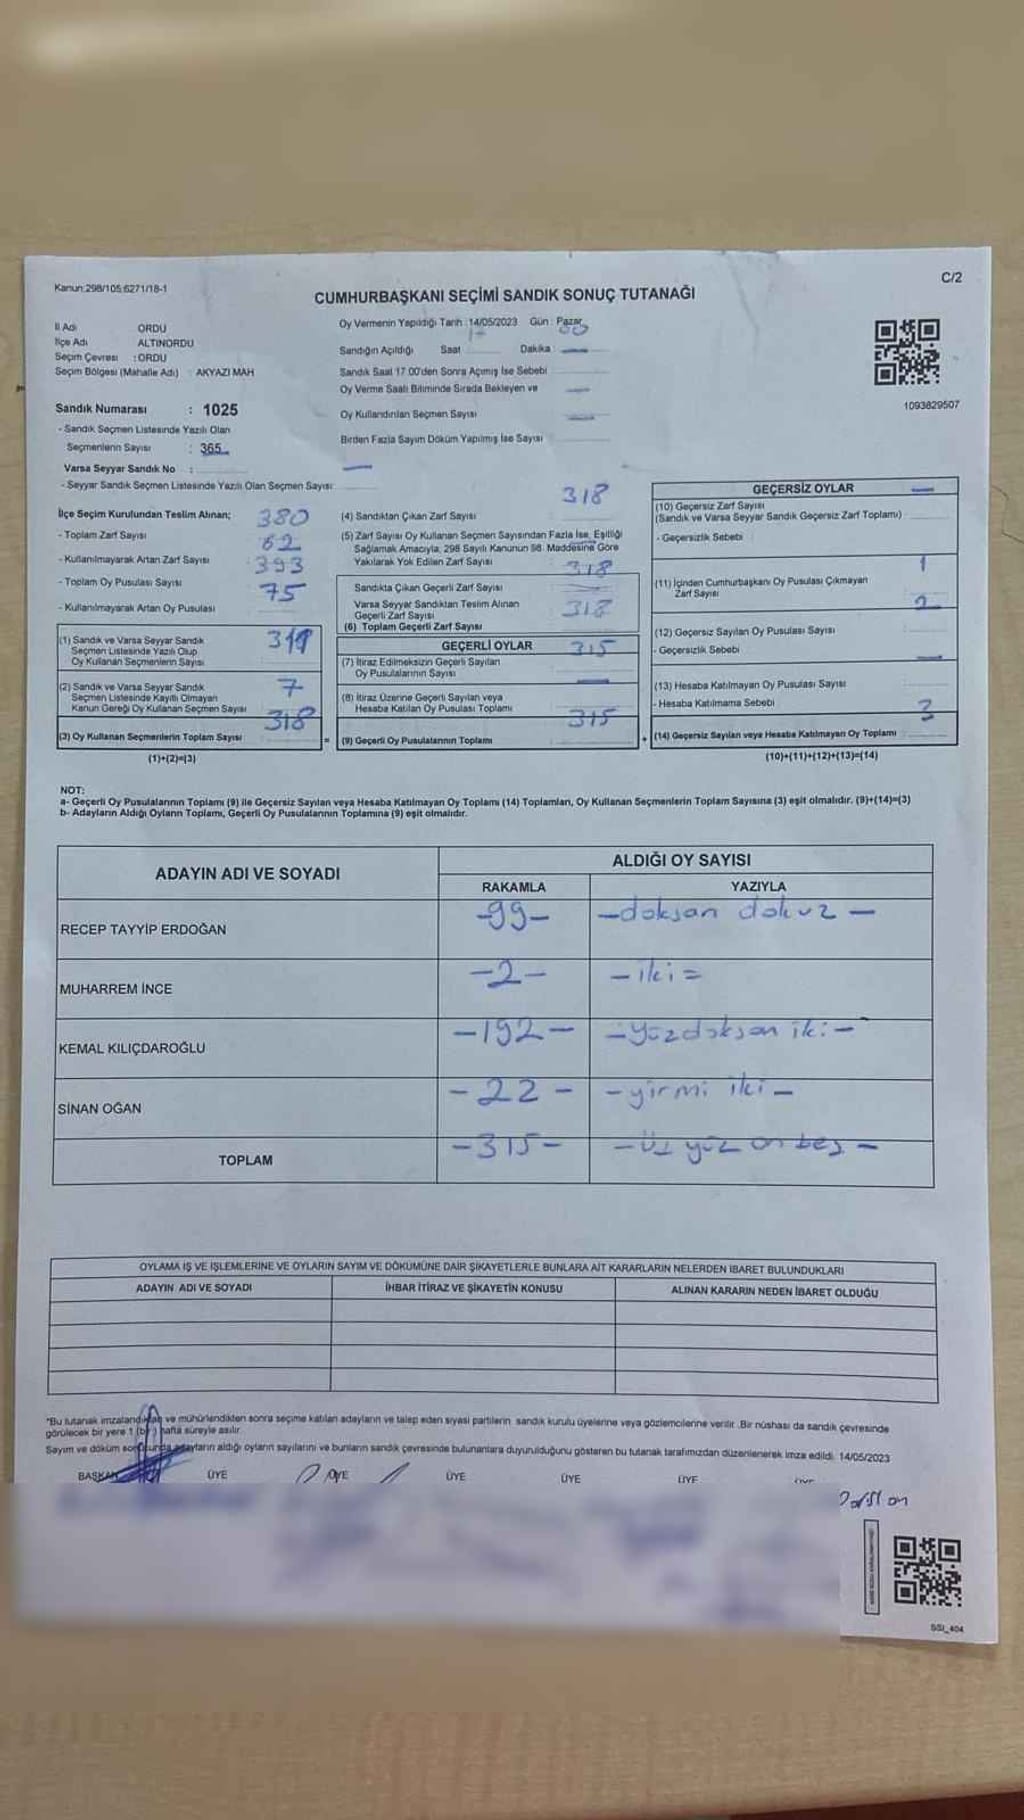 Kanun:298/105:6271/18-1
C/2
CUMHURBAŞKANI SEÇİMİ SANDIK SONUÇ TUTANAĞI
İl Adı ORDU
İlçe Adı ALTINORDU
Seçim Çevresi : ORDU
Seçim Bölgesi (Mahalle Adı) : AKYAZI MAH
Sandık Numarası : 1025
- Sandık Seçmen Listesinde Yazılı Olan
Seçmenlerin Sayısı : 365
Varsa Seyyar Sandık No :
- Seyyar Sandık Seçmen Listesinde Yazılı Olan Seçmen Sayısı
Oy Vermenin Yapıldığı Tarih :14/05/2023 Gün : Pazar
Sandığın Açıldığı Saat 17 Dakika 00
Sandık Saat 17.00'den Sonra Açımış İse Sebebi
Oy Verme Saati Bitiminde Sırada Bekleyen ve
Oy Kullandırılan Seçmen Sayısı
Birden Fazla Sayım Döküm Yapılmış İse Sayısı
1093829507
İlçe Seçim Kurulundan Teslim Alınan;
- Toplam Zarf Sayısı 380
- Kullanılmayarak Artan Zarf Sayısı 62
- Toplam Oy Pusulası Sayısı 393
- Kullanılmayarak Artan Oy Pusulası 75
(1) Sandık ve Varsa Seyyar Sandık
Seçmen Listesinde Yazılı Olup
Oy Kullanan Seçmenlerin Sayısı
(2) Sandık ve Varsa Seyyar Sandık
Seçmen Listesinde Kayıtlı Olmayan
Kanun Gereği Oy Kullanan Seçmen Sayısı 7
(3) Oy Kullanan Seçmenlerin Toplam Sayısı 318 =
(1)+(2)=(3)
(4) Sandıktan Çıkan Zarf Sayısı 318
(5) Zarf Sayısı Oy Kullanan Seçmen Sayısından Fazla İse, Eşitliği
Sağlamak Amacıyla, 298 Sayılı Kanunun 98. Maddesine Göre
Yakılarak Yok Edilen Zarf Sayısı
Sandıkta Çıkan Geçerli Zarf Sayısı 318
Varsa Seyyar Sandıktan Teslim Alınan
Geçerli Zarf Sayısı
(6) Toplam Geçerli Zarf Sayısı 318
GEÇERLİ OYLAR
(7) İtiraz Edilmeksizin Geçerli Sayılan
Oy Pusulalarının Sayısı 315
(8) İtiraz Üzerine Geçerli Sayılan veya
Hesaba Katılan Oy Pusulası Toplamı
(9) Geçerli Oy Pusulalarının Toplamı 315 +
GEÇERSİZ OYLAR
(10) Geçersiz Zarf Sayısı
(Sandık ve Varsa Seyyar Sandık Geçersiz Zarf Toplamı)
- Geçersizlik Sebebi
(11) İçinden Cumhurbaşkanı Oy Pusulası Çıkmayan
Zarf Sayısı 1
(12) Geçersiz Sayılan Oy Pusulası Sayısı 2
- Geçersizlik Sebebi
(13) Hesaba Katılmayan Oy Pusulası Sayısı
- Hesaba Katılmama Sebebi
(14) Geçersiz Sayılan veya Hesaba Katılmayan Oy Toplamı 3
(10)+(11)+(12)+(13)=(14)
NOT:
a- Geçerli Oy Pusulalarının Toplamı (9) ile Geçersiz Sayılan veya Hesaba Katılmayan Oy Toplamı (14) Toplamları, Oy Kullanan Seçmenlerin Toplam Sayısına (3) eşit olmalıdır. (9)+(14)=(3)
b- Adayların Aldığı Oyların Toplamı, Geçerli Oy Pusulalarının Toplamına (9) eşit olmalıdır.
ADAYIN ADI VE SOYADI ALDIĞI OY SAYISI
RAKAMLA YAZIYLA
RECEP TAYYİP ERDOĞAN -99- -doksan dokuz-
MUHARREM İNCE -2- -iki=
KEMAL KILIÇDAROĞLU -192- -yüzdoksan iki-
SİNAN OĞAN -22- -yirmi iki-
TOPLAM -315- -üç yüz on beş-
OYLAMA İŞ VE İŞLEMLERİNE VE OYLARIN SAYIM VE DÖKÜMÜNE DAİR ŞİKAYETLERLE BUNLARA AİT KARARLARIN NELERDEN İBARET BULUNDUKLARI
ADAYIN ADI VE SOYADI İHBAR İTİRAZ VE ŞİKAYETİN KONUSU ALINAN KARARIN NEDEN İBARET OLDUĞU
*Bu tutanak imzalandıktan ve mühürlendikten sonra seçime katılan adayların ve talep eden siyasi partilerin sandık kurulu üyelerine veya gözlemcilerine verilir. Bir nüshası da sandık çevresinde
görülecek bir yere 1 (bir) hafta süreyle asılır.
Sayım ve döküm sonucunda adayların aldığı oyların sayılarını ve bunların sandık çevresinde bulunanlara duyurulduğunu gösteren bu tutanak tarafımızdan düzenlenerek imza edildi. 14/05/2023
BAŞKAN ÜYE ÜYE ÜYE ÜYE ÜYE ÜYE
SSI_404